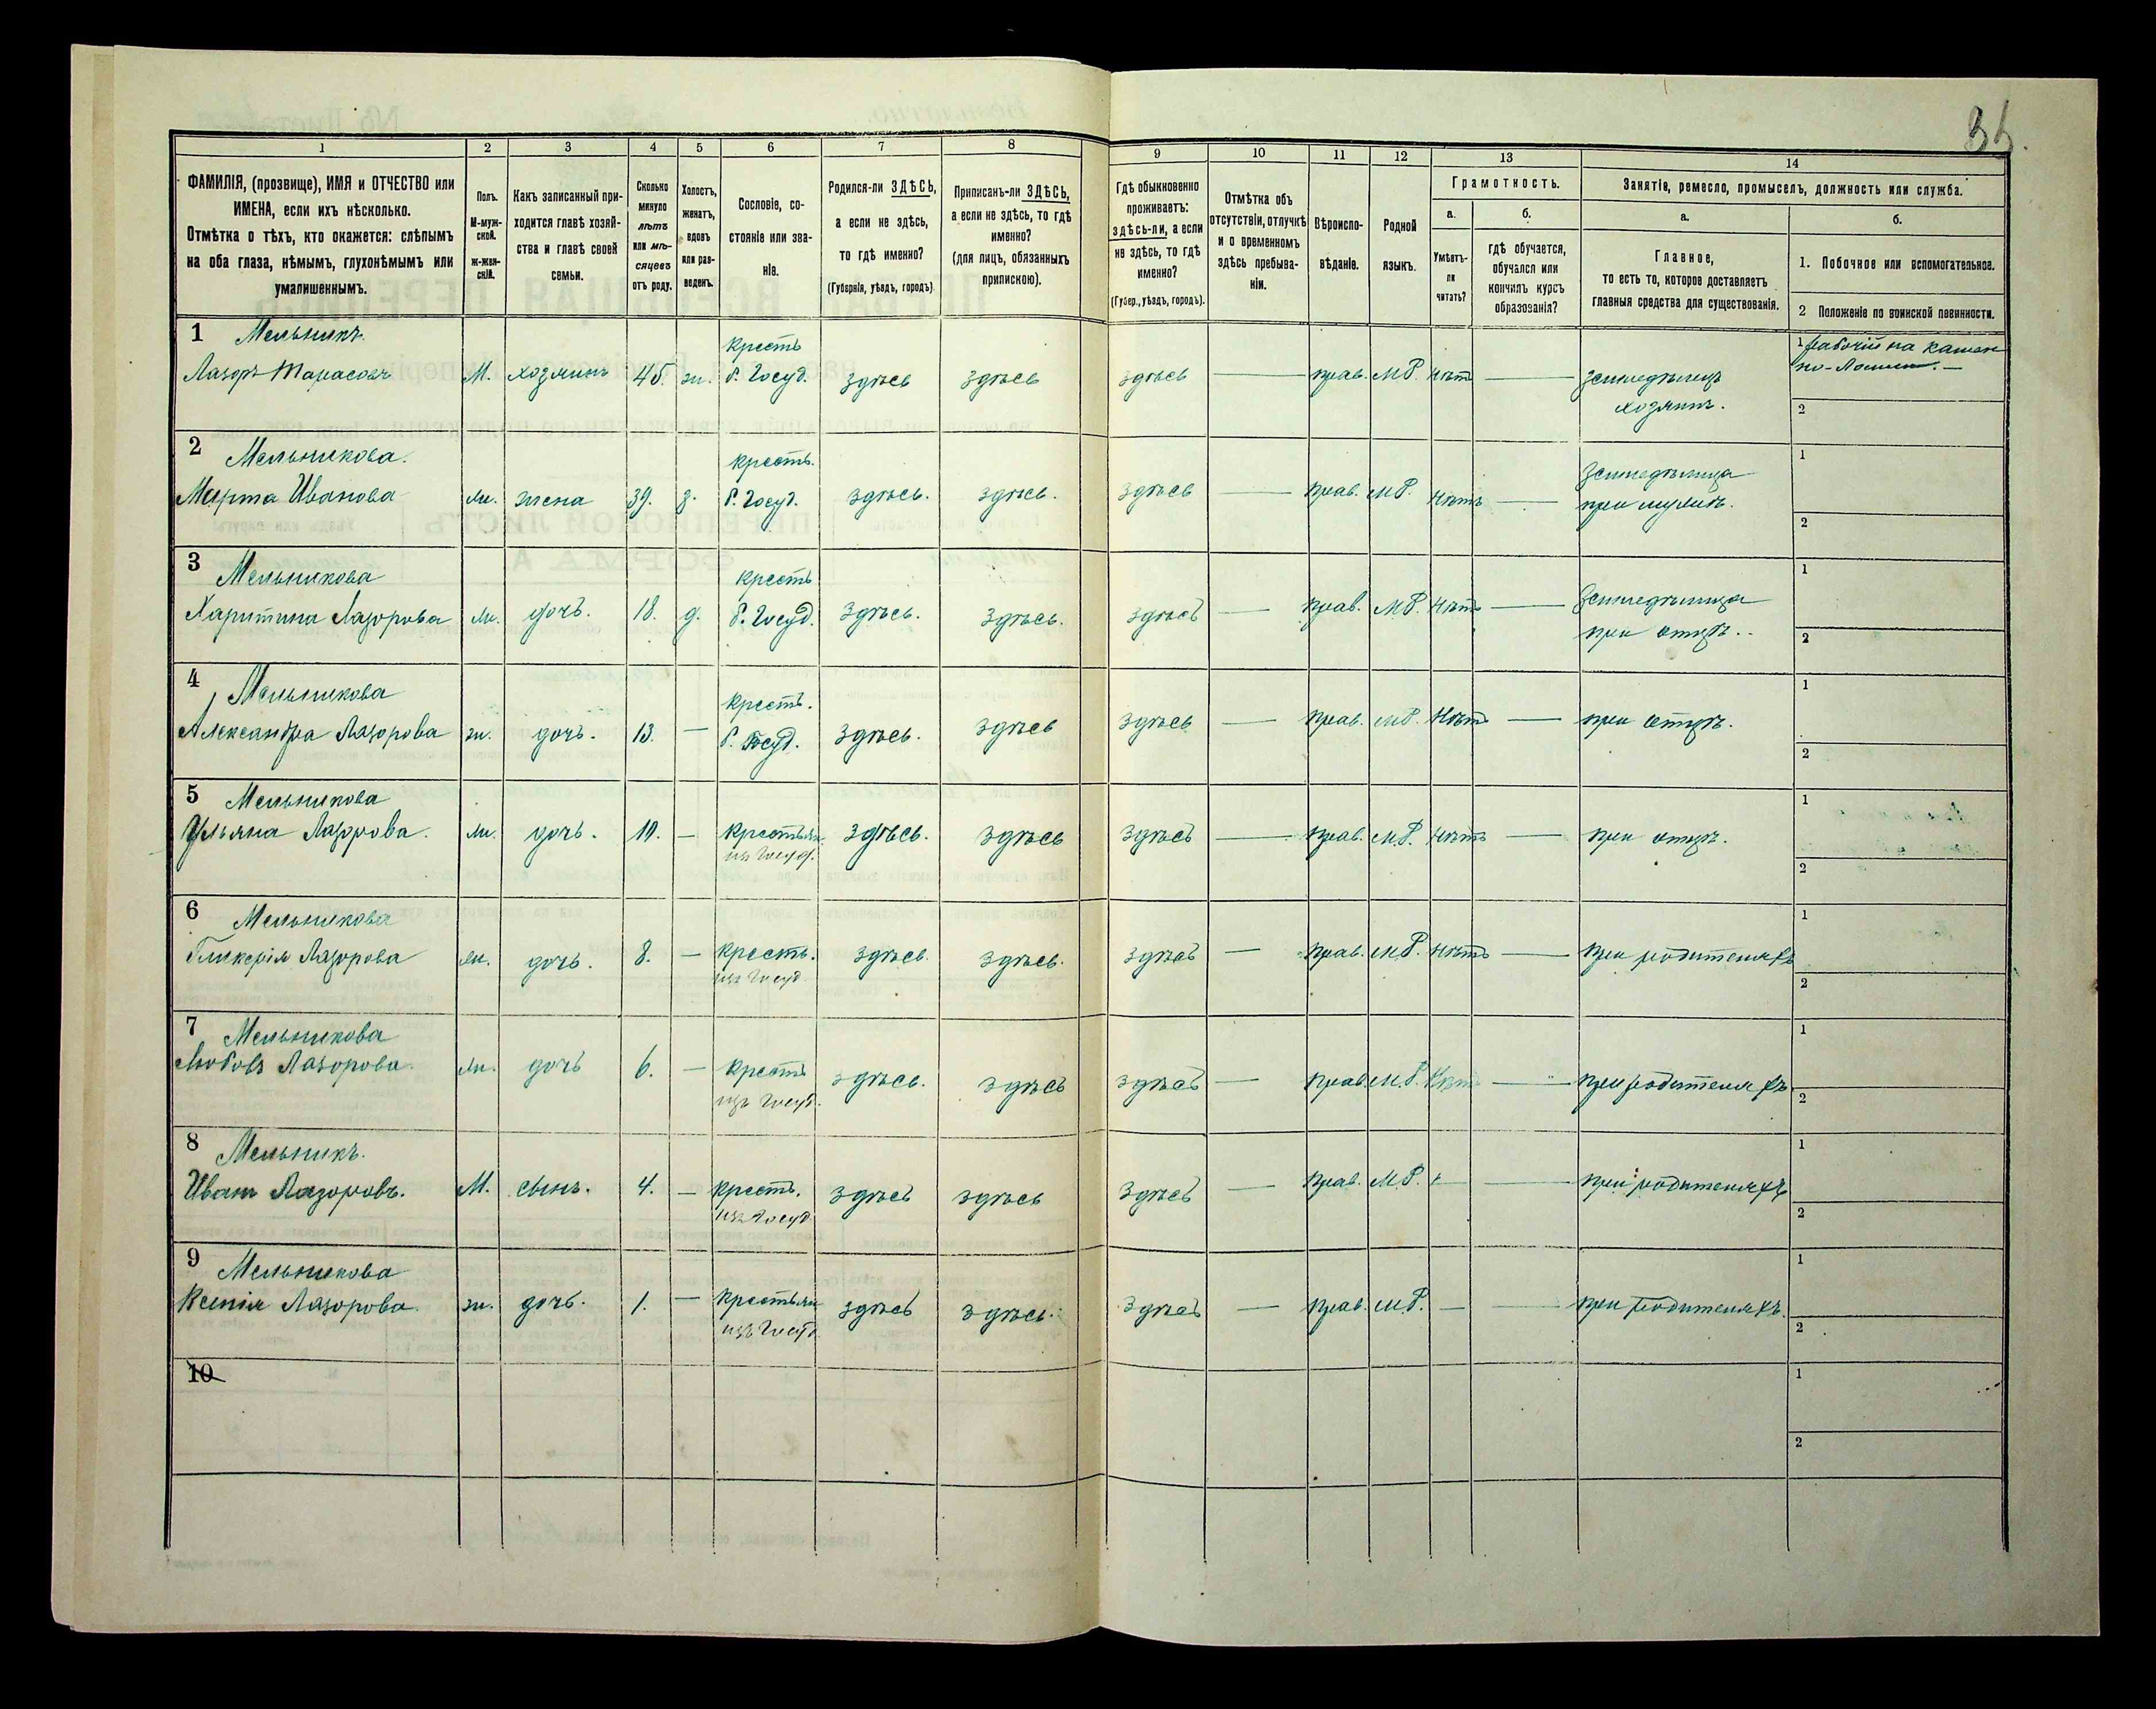 35.
1
2
3
4
5
6
7
8
9
10
11
12
13
14
ФАМИЛІЯ, (прозвище), ИМЯ и ОТЧЕСТВО или
ИМЕНА, если ихъ нѣсколько.
Отмѣтка о тѣхъ, кто окажется: слѣпымъ
на оба глаза, нѣмымъ, глухонѣмымъ или
умалишеннымъ.
Полъ.
М-муж-
ской.
ж-жен-
скій.
Какъ записанный при-
ходится главѣ хозяй-
ства и главѣ своей
семьи.
Сколько
минуло
лѣтъ
или мѣ-
сяцевъ
отъ роду.
Холостъ,
женатъ,
вдовъ
или раз-
веденъ.
Сословіе, со-
стояніе или зва-
ніе.
Родился-ли ЗДѢСЬ,
а если не здѣсь,
то гдѣ именно?
(Губернія, уѣздъ, городъ)
Приписанъ-ли ЗДѢСЬ,
а если не здѣсь, то гдѣ
именно?
(для лицъ, обязанныхъ
припискою).
Гдѣ обыкновенно
проживаетъ:
здѣсь-ли, а если
не здѣсь, то гдѣ
именно?
(Губер., уѣздъ, городъ).
Отмѣтка объ
отсутствіи, отлучкѣ
и о временномъ
здѣсь пребыва-
ніи.
Вѣроиспо-
вѣданіе.
Родной
языкъ.
Грамотность.
а.
Умѣетъ-
ли
читать?
б.
гдѣ обучается,
обучался или
кончилъ курсъ
образованія?
Занятіе, ремесло, промыселъ, должность или служба.
а.
Главное,
то есть то, которое доставляетъ
главныя средства для существованія.
б.
1. Побочное или вспомогательное.
2 Положеніе по воинской повинности.
1 Мельникъ
Лазоръ Тарасовъ М. хозяинъ 45. ж. Кресть б. Госуд. здѣсь здѣсь здѣсь — прав. МР. нѣт — земледѣлецъ
хозяинъ.
1 рабочій на камен
но-
2
2 Мельникова.
Марта Иванова ж. жена 39. з. Кресть. б. Госуд. здѣсь. здѣсь. здѣсь — прав. МР. нѣтъ — Земледѣлица
при мужѣ.
1
2
3 Мельникова
Харитина Лазорова ж. дочь. 18. д. кресть б. Госуд. здѣсь. здѣсь. здѣсь — прав. МР. нѣтъ — Земледѣлица
при отцѣ.
1
2
4 Мельникова
Александра Лазорова ж. дочь. 13. — Кресть. б. Госуд. здѣсь. здѣсь здѣсь — прав. МР. нѣтъ — при отцѣ.
1
2
5 Мельникова
Ульяна Лазорова. ж. дочь. 10. — крестьян. здѣсь. здѣсь здѣсь — прав. МР. нѣтъ — при отцѣ.
изъ Госуд.
1
2
6 Мельникова
Гликерія Лазорова ж. дочь. 8. — кресть. здѣсь. здѣсь. здѣсь — прав. МР. нѣтъ — при родителяхъ
изъ Госуд.
1
2
7 Мельникова
Любовь Лазорова. ж. дочь 6. — кресть здѣсь. здѣсь здѣсь — прав. МР. нѣт — при родителяхъ
изъ Госуд.
1
2
8 Мельникъ.
Иванъ Лазоровъ. М. сынъ. 4. — кресть. здѣсь здѣсь здѣсь — прав. МР. — при родителяхъ
изъ Госуд
1
2
9 Мельникова
Ксенія Лазорова. ж. дочь. 1. — крестьян здѣсь здѣсь. здѣсь — прав. МР. — при родителяхъ.
изъ Госуд
1
2
10
1
2